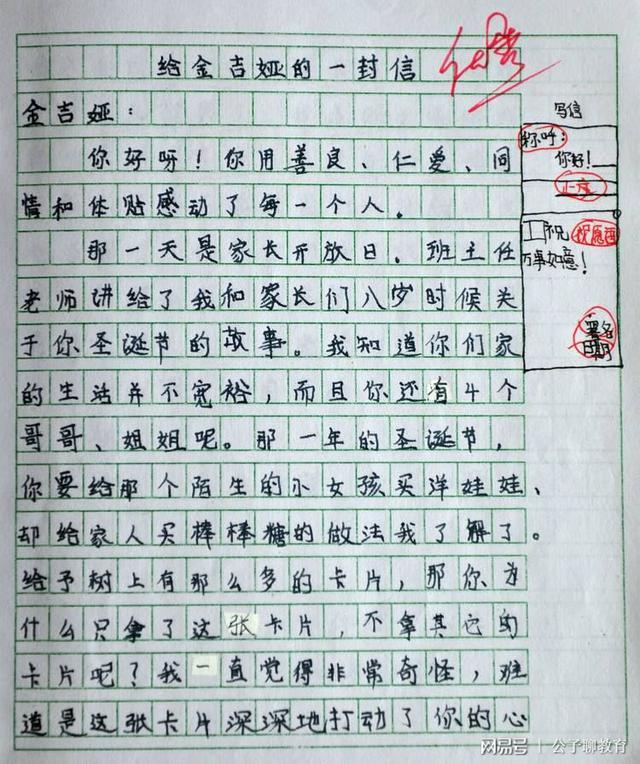 给金吉娅的一封信
金吉娅：
你好呀！你用善良、仁爱、同
情和体贴感动了每一个人。
那一天是家长开放日。班主任
老师讲给了我和家长们八岁时候关
于你圣诞节的故事。我知道你们家
的生活并不宽裕，而且你还有4个
哥哥、姐姐呢。那一年的圣诞节，
你要给那个陌生的小女孩买洋娃娃、
却给家人买棒棒糖的做法我了解了。
给予树上有那么多的卡片，那你为
什么只拿了这张卡片，不拿其它的
卡片呢？我一直觉得非常奇怪，难
道是这张卡片深深地打动了你的心
写信
称呼：
你好！
正文
祝
祝愿语
万事如意！
署名
日期
网易号 | 公子聊教育